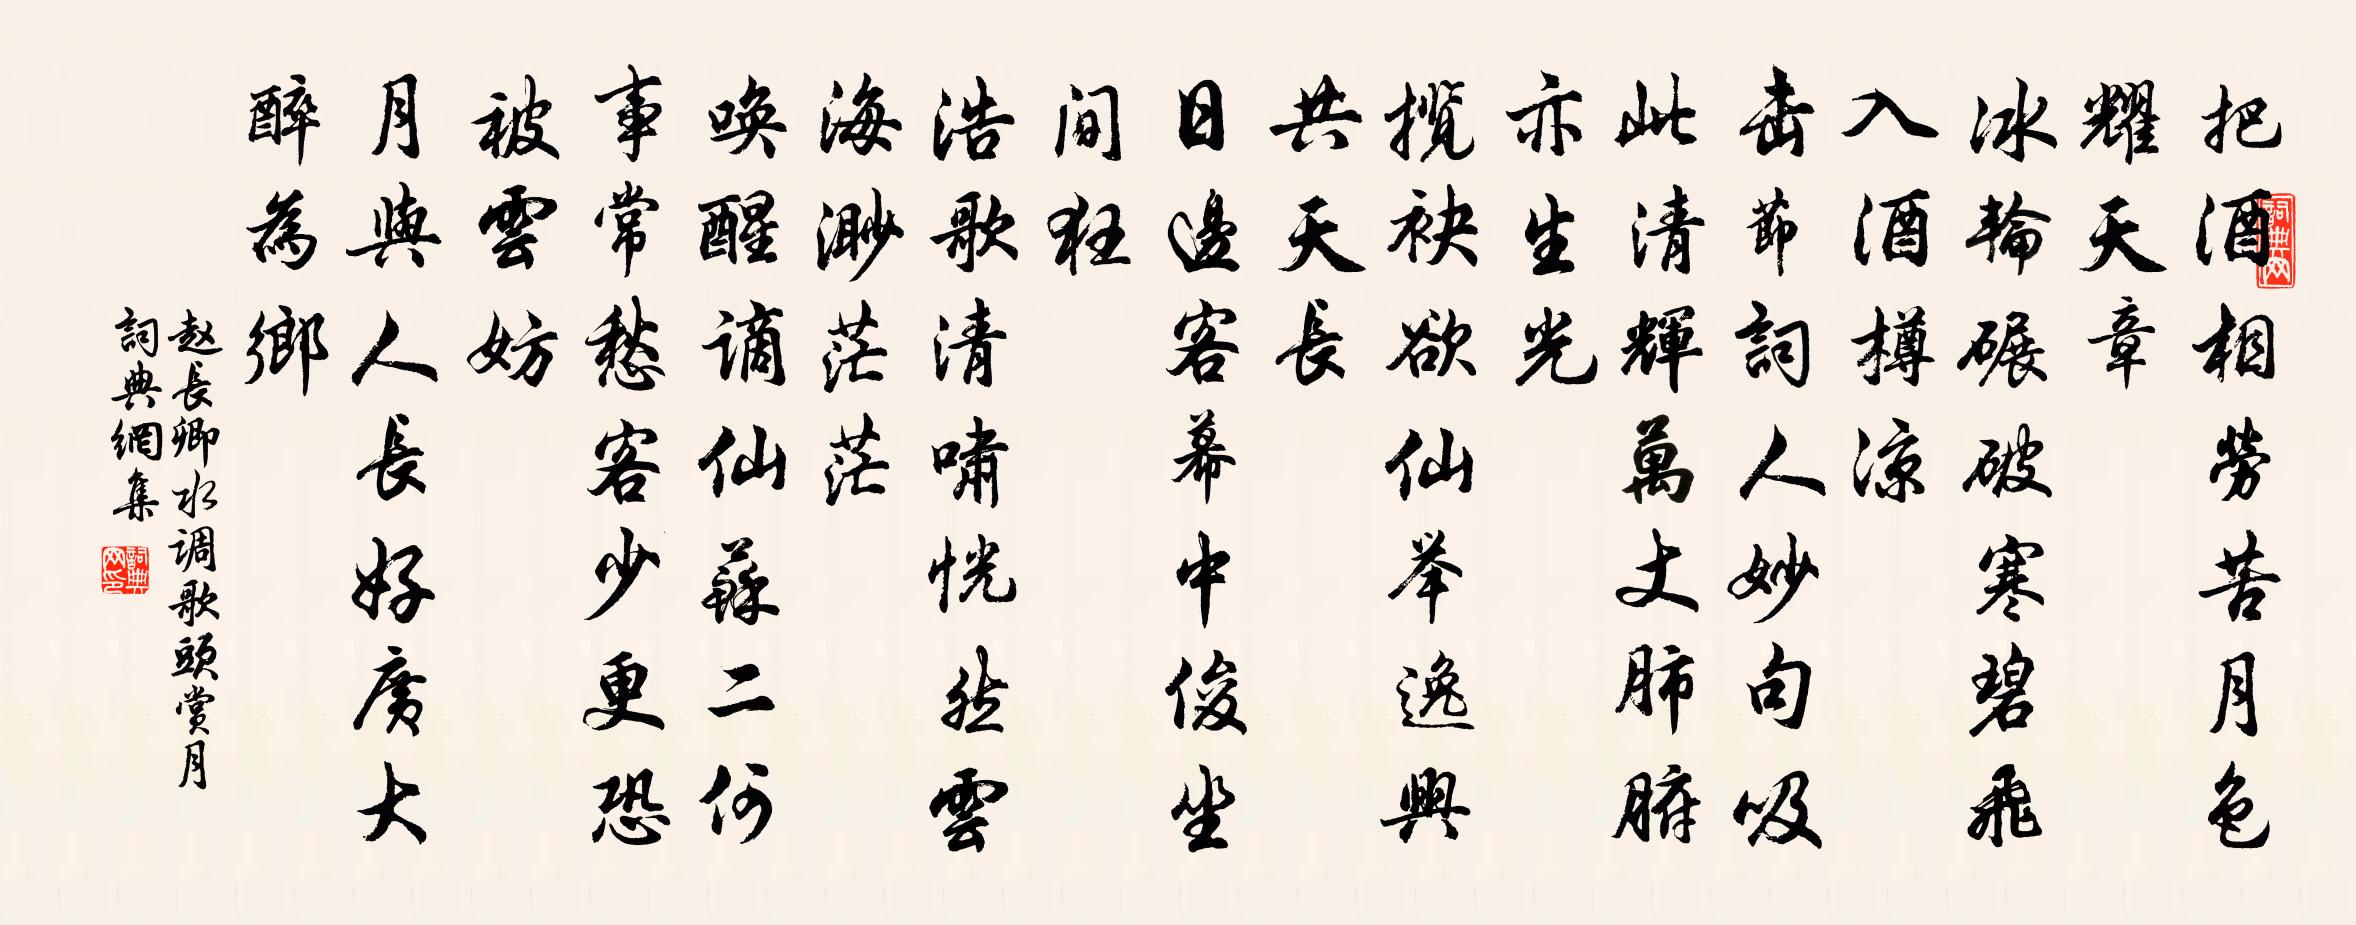 把酒相勞苦月色
耀天章
冰輪碾破寒碧飛
入酒樽涼
击節詞人妙句吸
此清輝萬丈肺腑
亦生光
揽袂欲仙举逸興
共天長
日邊客幕中俊坐
間狂
浩歌清嘯恍然雲
海渺茫茫
唤醒谪仙蘇二何
事常愁客少更恐
被雲妨
月與人長好廣大
醉為鄉
赵長卿水调歌頭賞月
詞典網集
詞典网
詞典网印